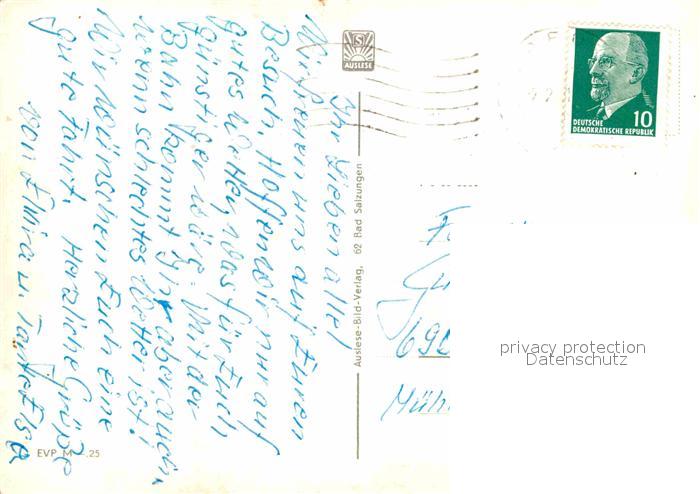 Ihr Lieben alle!
Wir freuen uns auf Euren
Besuch. Hoffen wir nur auf
gutes Wetter, was für Euch
günstiger wäre. Mit der
Bahn kommt Ihr aber auch,
wenn schlechtes Wetter ist!
Wir wünschen Euch eine
gute Fahrt. Herzliche Grüße
von Elvira u. Tante Elsa
EVP M -.25
S
AUSLESE
Auslese-Bild-Verlag, 62 Bad Salzungen
DEUTSCHE
DEMOKRATISCHE REPUBLIK
10
690
Mühl
privacy protection
Datenschutz